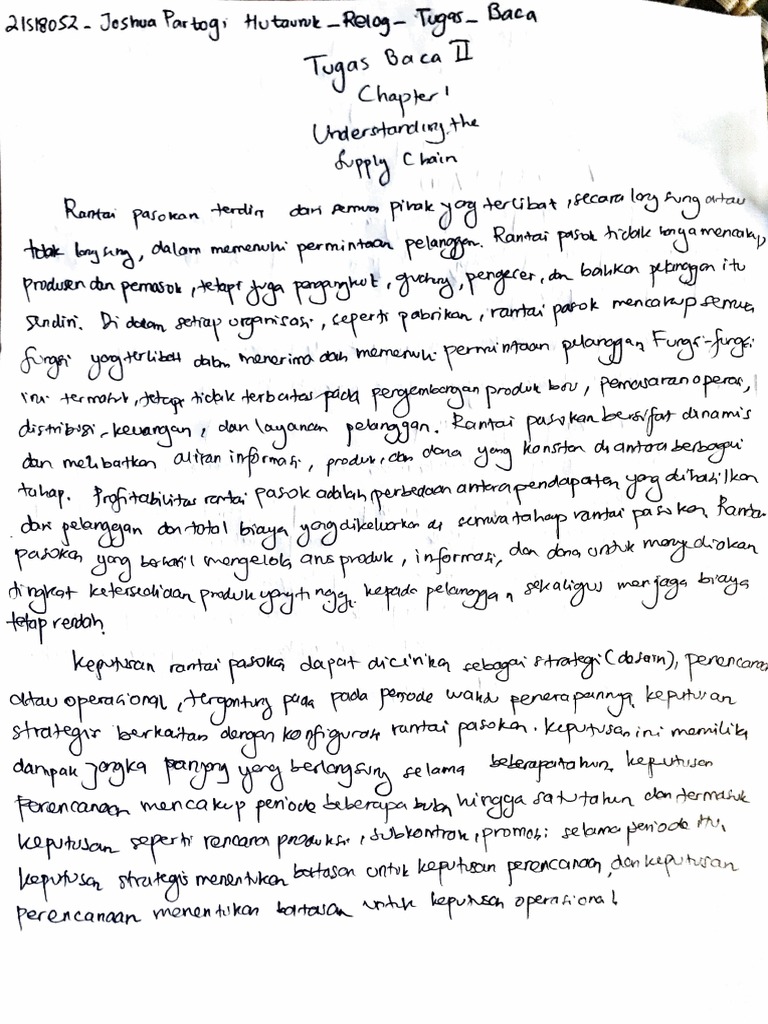 21S18052 - Joshua Partogi Hutauruk_Relog_Tugas_Baca
Tugas Baca II
Chapter 1
Understanding the
Supply Chain
Rantai pasokan terdiri dari semua pihak yang terlibat, secara langsung atau
tidak langsung, dalam memenuhi permintaan pelanggan. Rantai pasok tidak hanya mencakup
produsen dan pemasok, tetapi juga pengangkut, gudang, pengecer, dan bahkan pelanggan itu
sendiri. Di dalam setiap organisasi, seperti pabrikan, rantai pasok mencakup semua
fungsi yang terlibat dalam menerima dan memenuhi permintaan pelanggan. Fungsi-fungsi
ini termasuk, tetapi tidak terbatas pada pengembangan produk baru, pemasaran operasi,
distribusi, keuangan, dan layanan pelanggan. Rantai pasokan bersifat dinamis
dan melibatkan aliran informasi, produk, dan dana yang konstan di antara berbagai
tahap. Profitabilitas rantai pasok adalah perbedaan antara pendapatan yang dihasilkan
dari pelanggan dan total biaya yang dikeluarkan di semua tahap rantai pasokan. Rantai
pasokan yang berhasil mengelola arus produk, informasi, dan dana untuk menyediakan
tingkat ketersediaan produk yang tinggi kepada pelanggan, sekaligus menjaga biaya
tetap rendah.
Keputusan rantai pasokan dapat dicirikan sebagai strategi (desain), perencanaan
atau operasional, tergantung pada pada periode waktu penerapannya, keputusan
strategis berkaitan dengan konfigurasi rantai pasokan. keputusan ini memiliki
dampak jangka panjang yang berlangsung selama beberapa tahun, keputusan
perencanaan mencakup periode beberapa bulan hingga satu tahun dan termasuk
keputusan seperti rencana produksi, subkontrak, promosi selama periode itu,
keputusan strategis menentukan batasan untuk keputusan perencanaan, dan keputusan
perencanaan menentukan batasan untuk keputusan operasional.